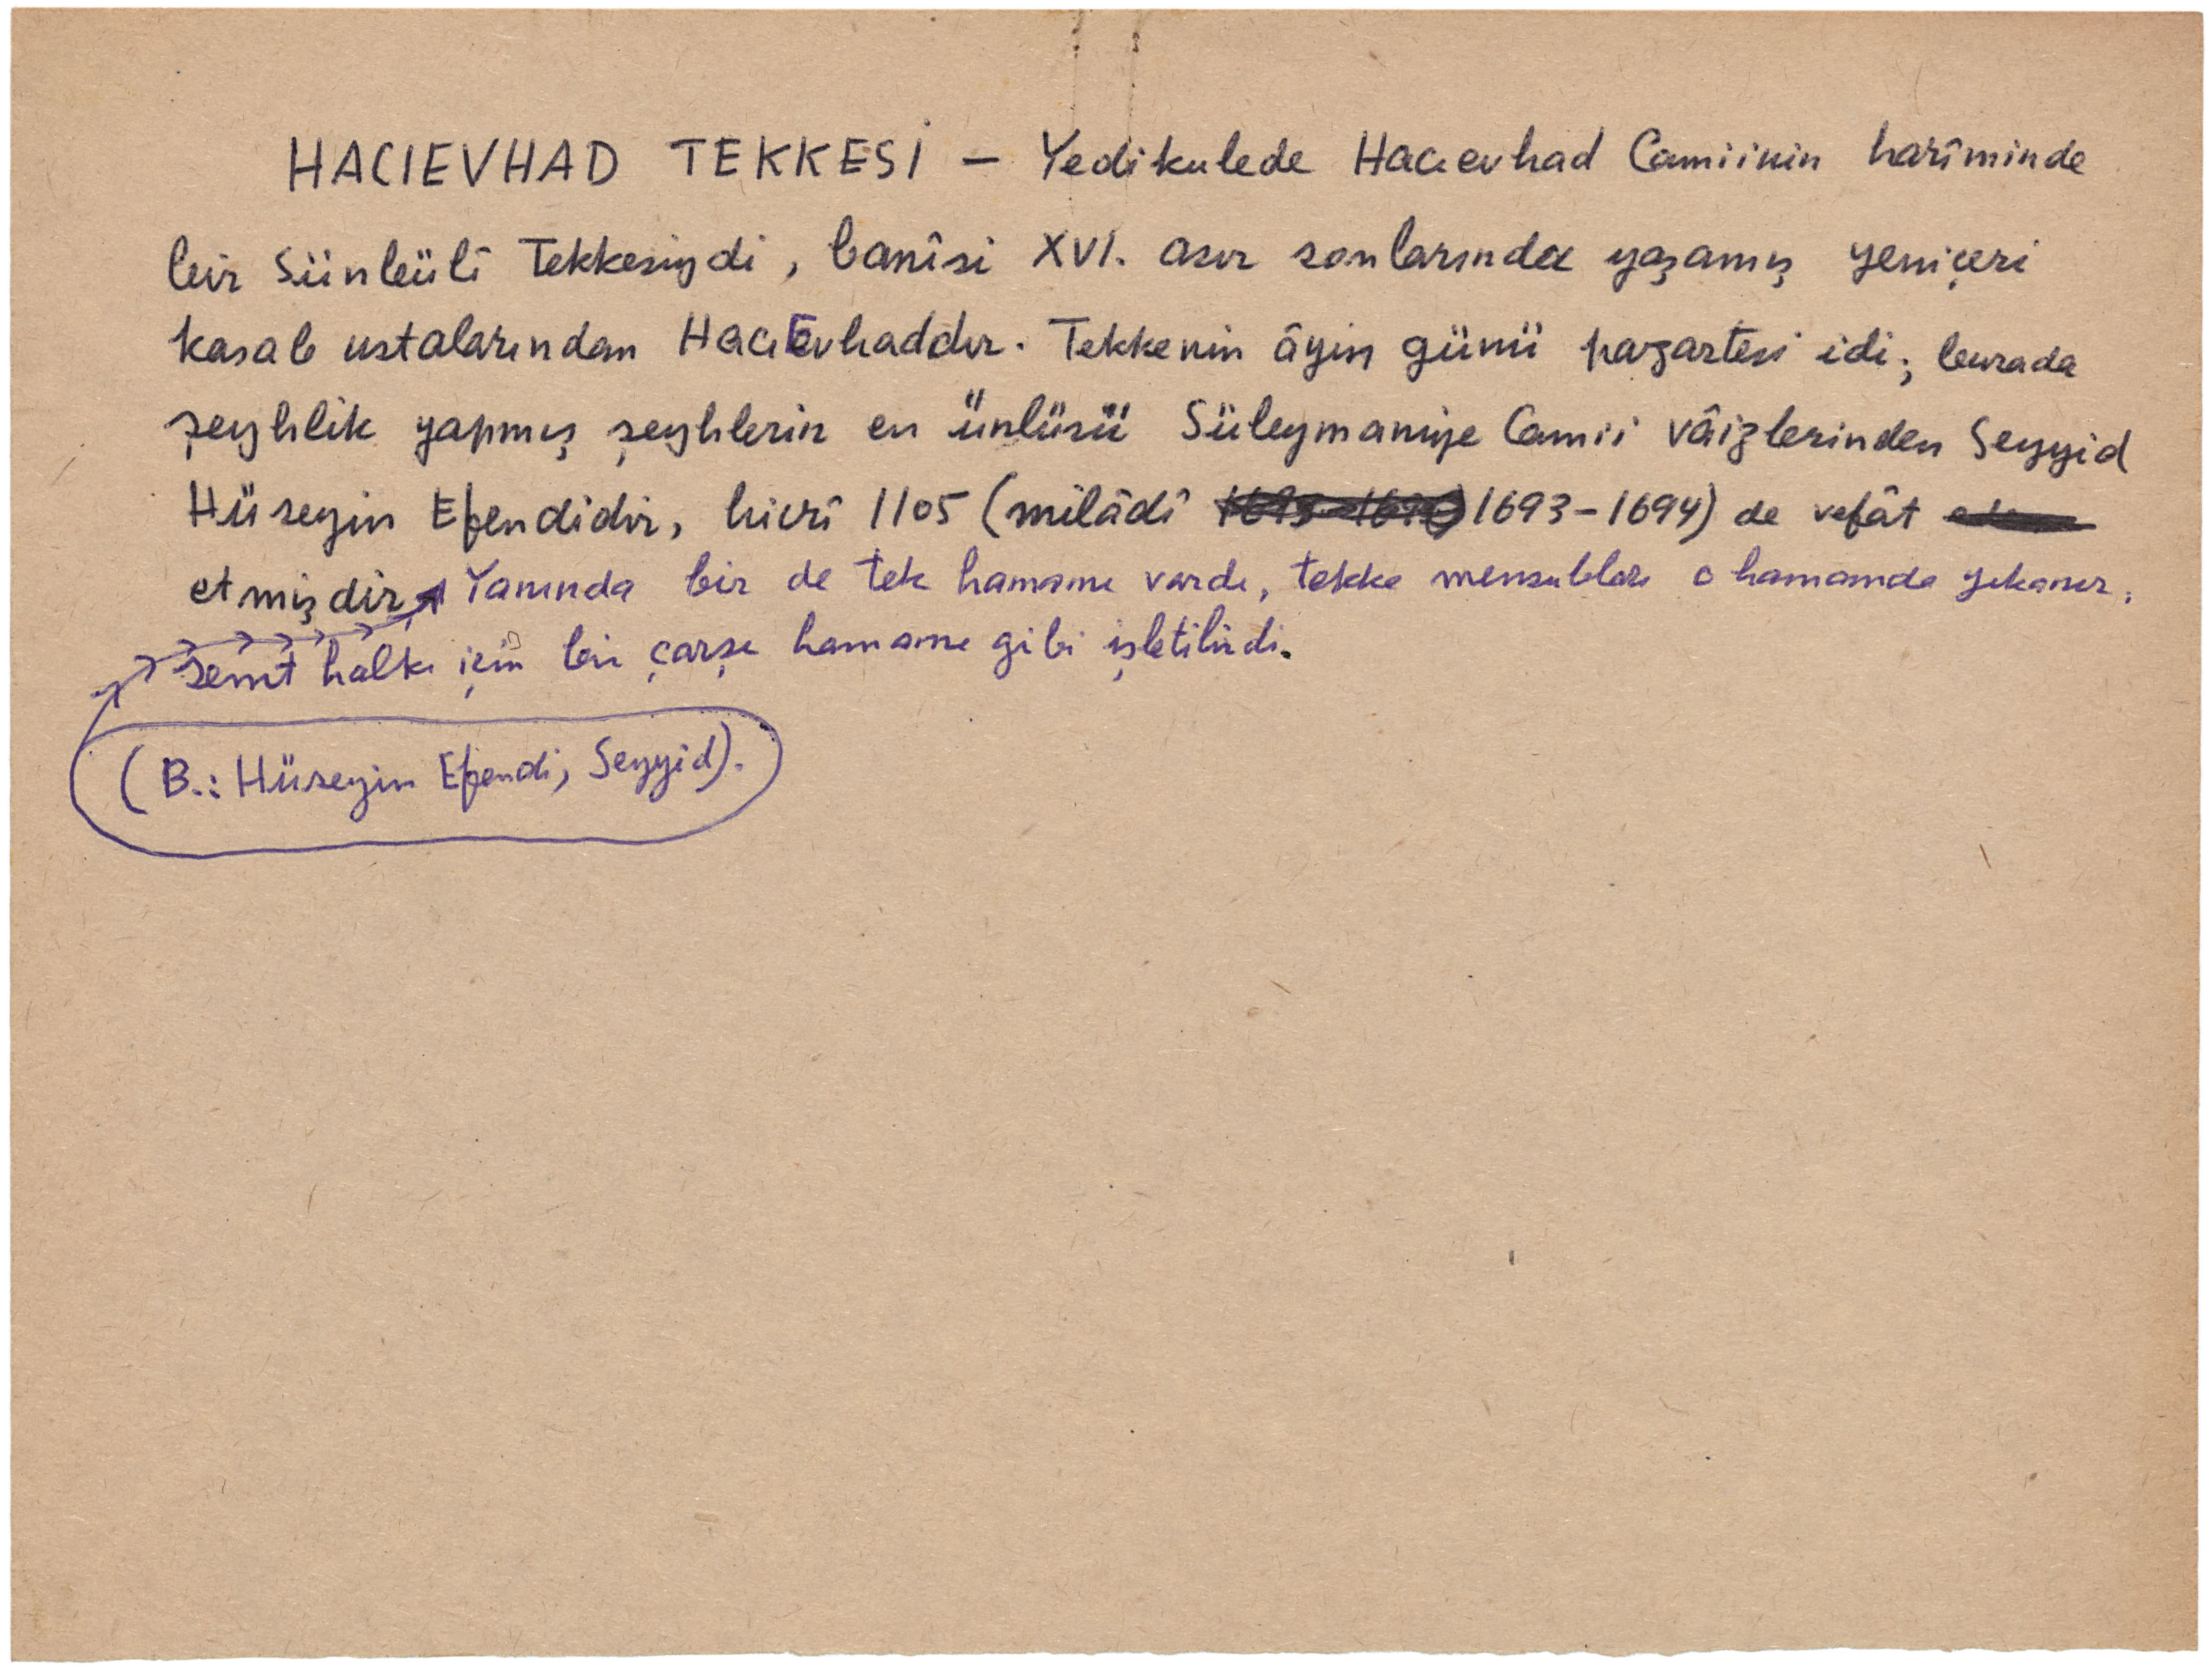 HACIEVHAD TEKKESİ – Yedikulede Hacıevhad Camiinin harîminde
bir Sünbülî Tekkesiydi, banîsi XVI. asır sonlarında yaşamış yeniçeri
kasab ustalarından Hacı Evhaddır. Tekkenin âyin günü pazartesi idi; burada
şeyhlik yapmış şeyhlerin en ünlüsü Süleymaniye Camii vâizlerinden Seyyid
Hüseyin Efendidir, hicrî 1105 (milâdî 1693-1694) de vefât
etmişdir. Yanında bir de tek hamamı vardı, tekke mensubları o hamamda yıkanır,
semt halkı için bir çarşı hamamı gibi işletilirdi.
(B.: Hüseyin Efendi, Seyyid).